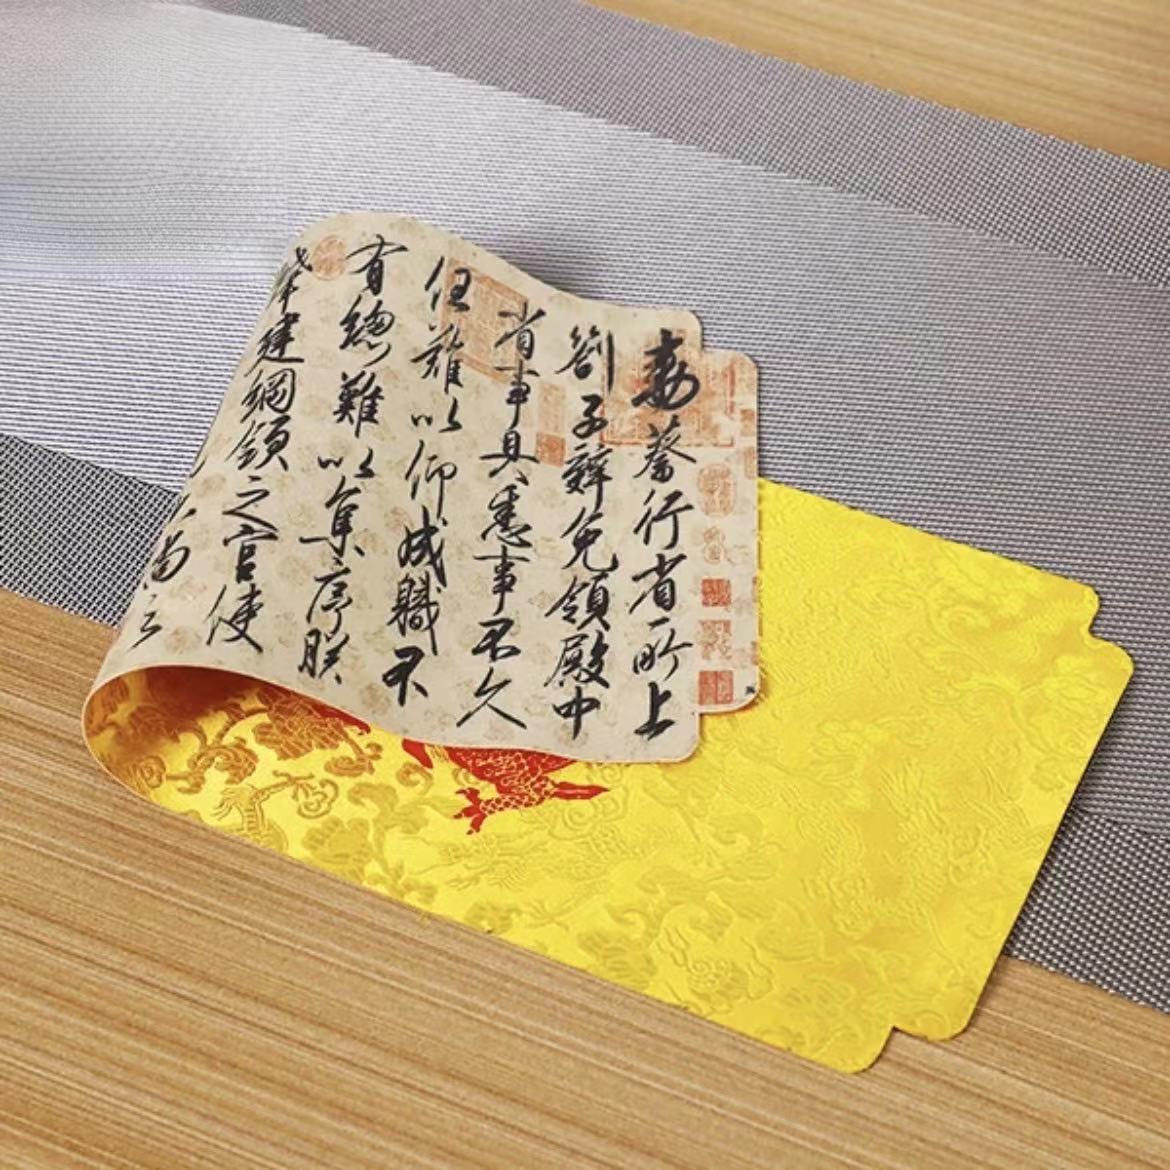 敕蔡行省所上
劄子辭免領殿中
省事具悉事不久
任難以仰成職不
有總難以集序朕
肇建綱領之官使
尚之